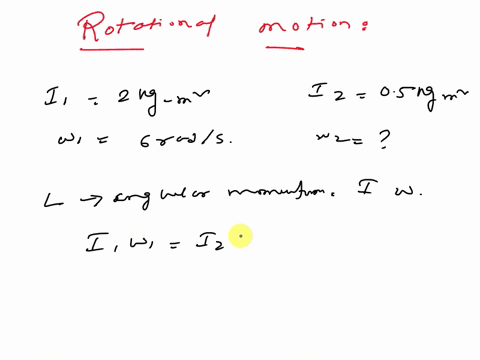 Rotational motion:
I1 = 2 kg-m² I2 = 0.5 kg m²
w1 = 6 rad/s. w2 = ?
L → angular momentum. I w.
I1 w1 = I2